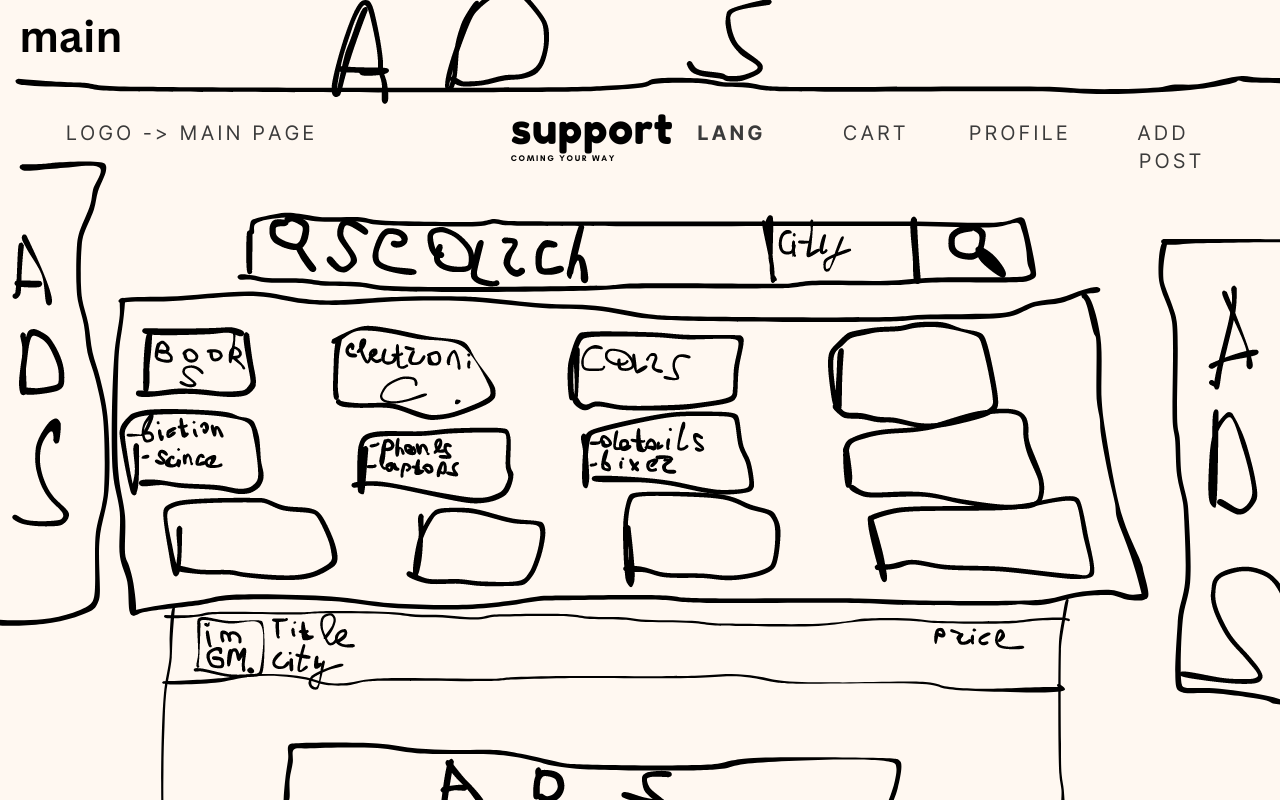 main
A D S
LOGO -> MAIN PAGE
support
COMING YOUR WAY
LANG
CART
PROFILE
ADD
POST
A
D
S
search
City
A
D
S
BOOK
S
electroni
c.
cars
-fiction
-scince
-phones
-laptops
-details
-fixer
im
GM.
Title
city
price
A D S